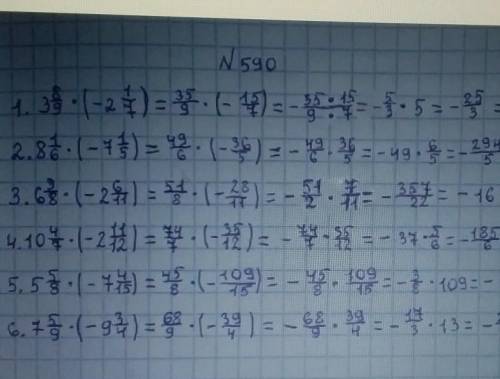 N590
1. 3 8/9 · (-2 1/7) = 35/9 · (- 15/7) = - 35·15/9·7 = - 5/3 · 5 = - 25/3 =
2. 8 1/6 · (-7 1/5) = 49/6 · (- 36/5) = - 49/6 · 36/5 = -49 · 6/5 = - 294/5
3. 6 3/8 · (-2 6/11) = 51/8 · (- 28/11) = - 51/2 · 7/11 = - 357/22 = -16
4. 10 4/7 · (-2 11/12) = 74/7 · (- 35/12) = - 74/7 · 35/12 = -37 · 5/6 = - 185/6
5. 5 5/8 · (-7 4/15) = 45/8 · (- 109/15) = - 45/8 · 109/15 = - 3/8 · 109 = -
6. 7 5/9 · (-9 3/4) = 68/9 · (- 39/4) = - 68/9 · 39/4 = - 17/3 · 13 = -